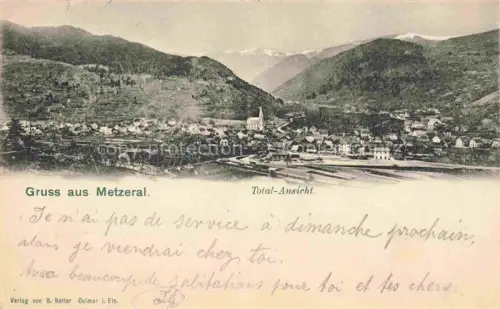 Gruss aus Metzeral.
Total-Ansicht.
Je n'ai pas de service à dimanche prochain,
alors je viendrai chez toi.
Avec beaucoup de salutations pour toi et tes chers.
Verlag von B. Netter Colmar i. Els.